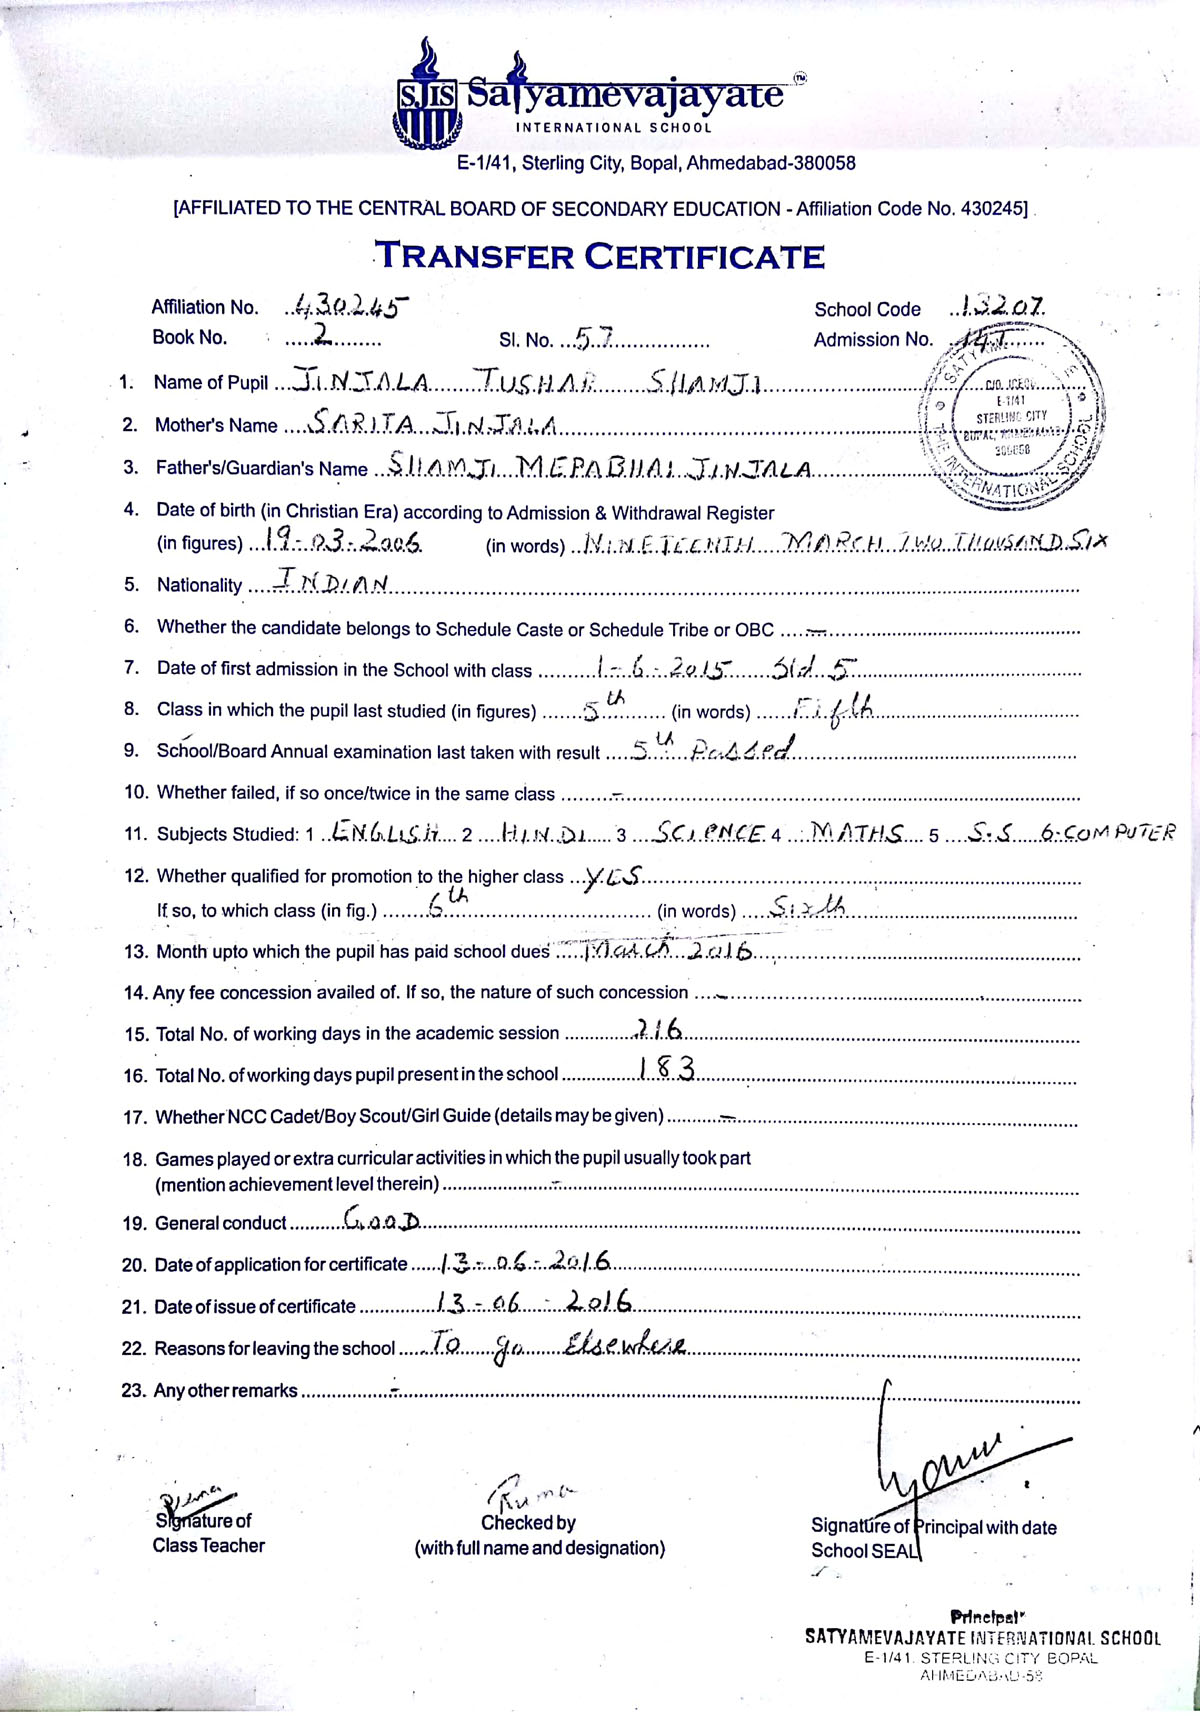 SJIS Satyamevajayate TM
INTERNATIONAL SCHOOL
E-1/41, Sterling City, Bopal, Ahmedabad-380058
[AFFILIATED TO THE CENTRAL BOARD OF SECONDARY EDUCATION - Affiliation Code No. 430245]
TRANSFER CERTIFICATE
Affiliation No. 430245 School Code 13207
Book No. 2 Sl. No. 57 Admission No. 147
C/O. JCECL
E-1/41
STERLING CITY
BOPAL, AHMEDABAD-
380058
THE INTERNATIONAL SCHOOL
1. Name of Pupil JINJALA TUSHAR SHAMJI
2. Mother's Name SARITA JINJALA
3. Father's/Guardian's Name SHAMJI MEPABHAI JINJALA
4. Date of birth (in Christian Era) according to Admission & Withdrawal Register
(in figures) 19-03-2006 (in words) NINETEENTH MARCH TWO THOUSAND SIX
5. Nationality INDIAN
6. Whether the candidate belongs to Schedule Caste or Schedule Tribe or OBC -
7. Date of first admission in the School with class 1-6-2015 Std 5
8. Class in which the pupil last studied (in figures) 5th (in words) Fifth
9. School/Board Annual examination last taken with result 5th Passed
10. Whether failed, if so once/twice in the same class -
11. Subjects Studied: 1 ENGLISH 2 HINDI 3 SCIENCE 4 MATHS 5 S.S 6. COMPUTER
12. Whether qualified for promotion to the higher class YES
If so, to which class (in fig.) 6th (in words) Sixth
13. Month upto which the pupil has paid school dues March 2016
14. Any fee concession availed of. If so, the nature of such concession -
15. Total No. of working days in the academic session 216
16. Total No. of working days pupil present in the school 183
17. Whether NCC Cadet/Boy Scout/Girl Guide (details may be given) -
18. Games played or extra curricular activities in which the pupil usually took part
(mention achievement level therein) -
19. General conduct GOOD
20. Date of application for certificate 13-06-2016
21. Date of issue of certificate 13-06-2016
22. Reasons for leaving the school To go Elsewhere
23. Any other remarks -
Ruma
Signature of
Class Teacher
Checked by
(with full name and designation)
Signature of Principal with date
School SEAL
Principal
SATYAMEVAJAYATE INTERNATIONAL SCHOOL
E-1/41. STERLING CITY BOPAL
AHMEDABAD-58